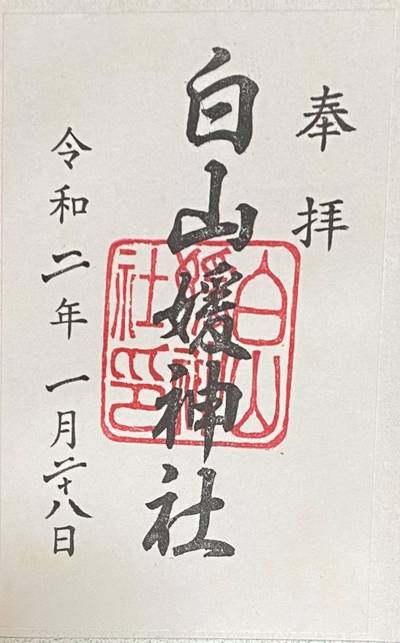 奉拝
白山媛神社
白山
媛神
社印
令和二年一月二十八日